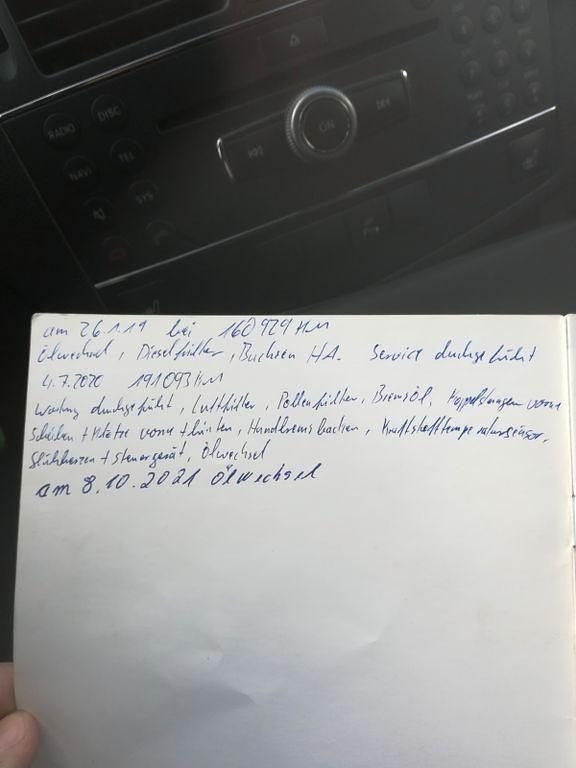 RADIO DISC
NAVI TEL
SYS
ON
am 26.1.19 bei 160929 KM
Ölwechsel, Dieselfilter, Buchsen HA. Service durchgeführt
4.7.2020 191093 KM
Wartung durchgeführt, Luftfilter, Pollenfilter, Bremsöl, Koppelstangen vorne
Scheiben + Klötze vorne + hinten, Handbremsbacken, Kraftstofftemperatursensor,
Glühkerzen + Steuergerät, Ölwechsel
am 8.10.2021 Ölwechsel